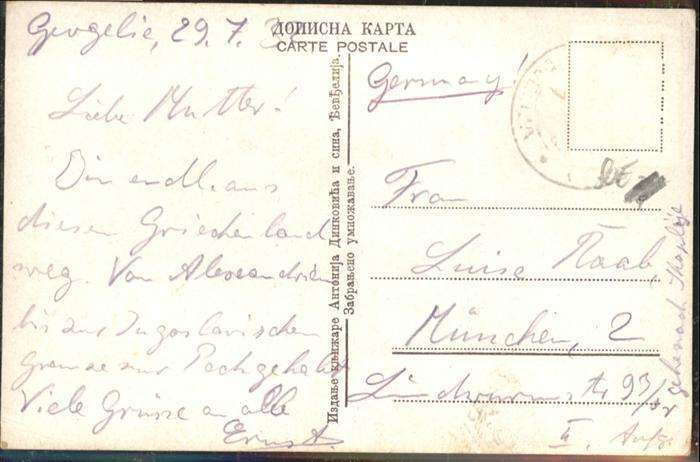 Gevgelie, 29. 7.
Liebe Mutter!
Bin endl. aus
diesem Griechenland
weg. Von Alexandrien
bis zur Jugoslavischen
Grenze nur Pech gehabt
Viele Grüsse an alle
Ernst.
ДОПИСНА КАРТА
CARTE POSTALE
Издање књижаре Антонија Динковића и сина, Ђевђелија.
Забрањено умножавање.
Germany!
Frau
Luise Raab,
München, 2
Lindwurmstr 93/
II. Aufg.
gehe nach Skoplje